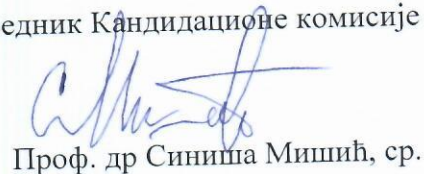 едник Кандидационе комисије
Проф. др Синиша Мишић, ср.